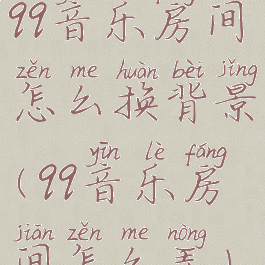 99音乐房间
zěn me huàn bèi jǐng
怎么换背景
yīn lè fáng
(99音乐房
jiān zěn me nòng
间怎么弄)